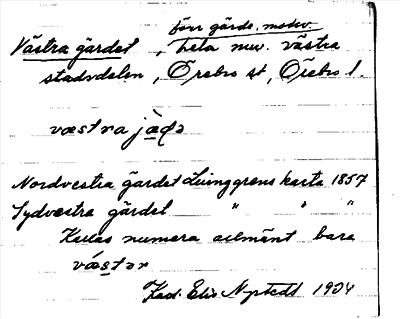 förr gärde, motsv.
Västra gärdet, hela nuv. västra
stadsdelen, Örebro st, Örebro l.
væstra jæ̀ḍə
Nordvestra gärdet Ljunggrens karta 1857
Sydvestra gärdet " " "
Kallas numera allmänt bara
vä́stər
Kand. Elis Nystedt 1904